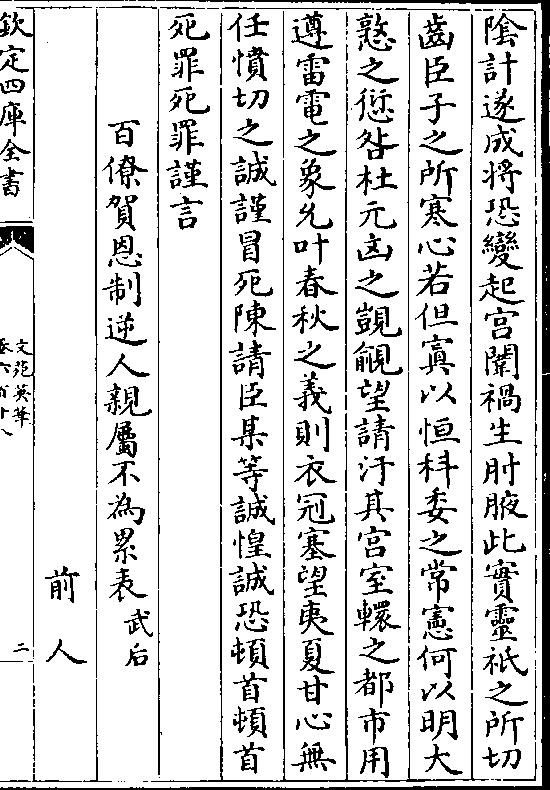 陰計遂成將恐變起宫闈禍生肘腋此實靈祇之所切
齒臣子之所寒心若但寘以恒科委之常憲何以明大
憝之愆咎杜元凶之覬覦望請汙其宫室轘之都市用
遵雷電之象允叶春秋之義則衣冠塞望夷夏甘心無
任憤切之誠謹冒死陳請臣某等誠惶誠恐頓首頓首
死罪死罪謹言
百僚賀恩制逆人親屬不為累表武后
前人
欽定四庫全書
文苑英華
卷六百十八
二